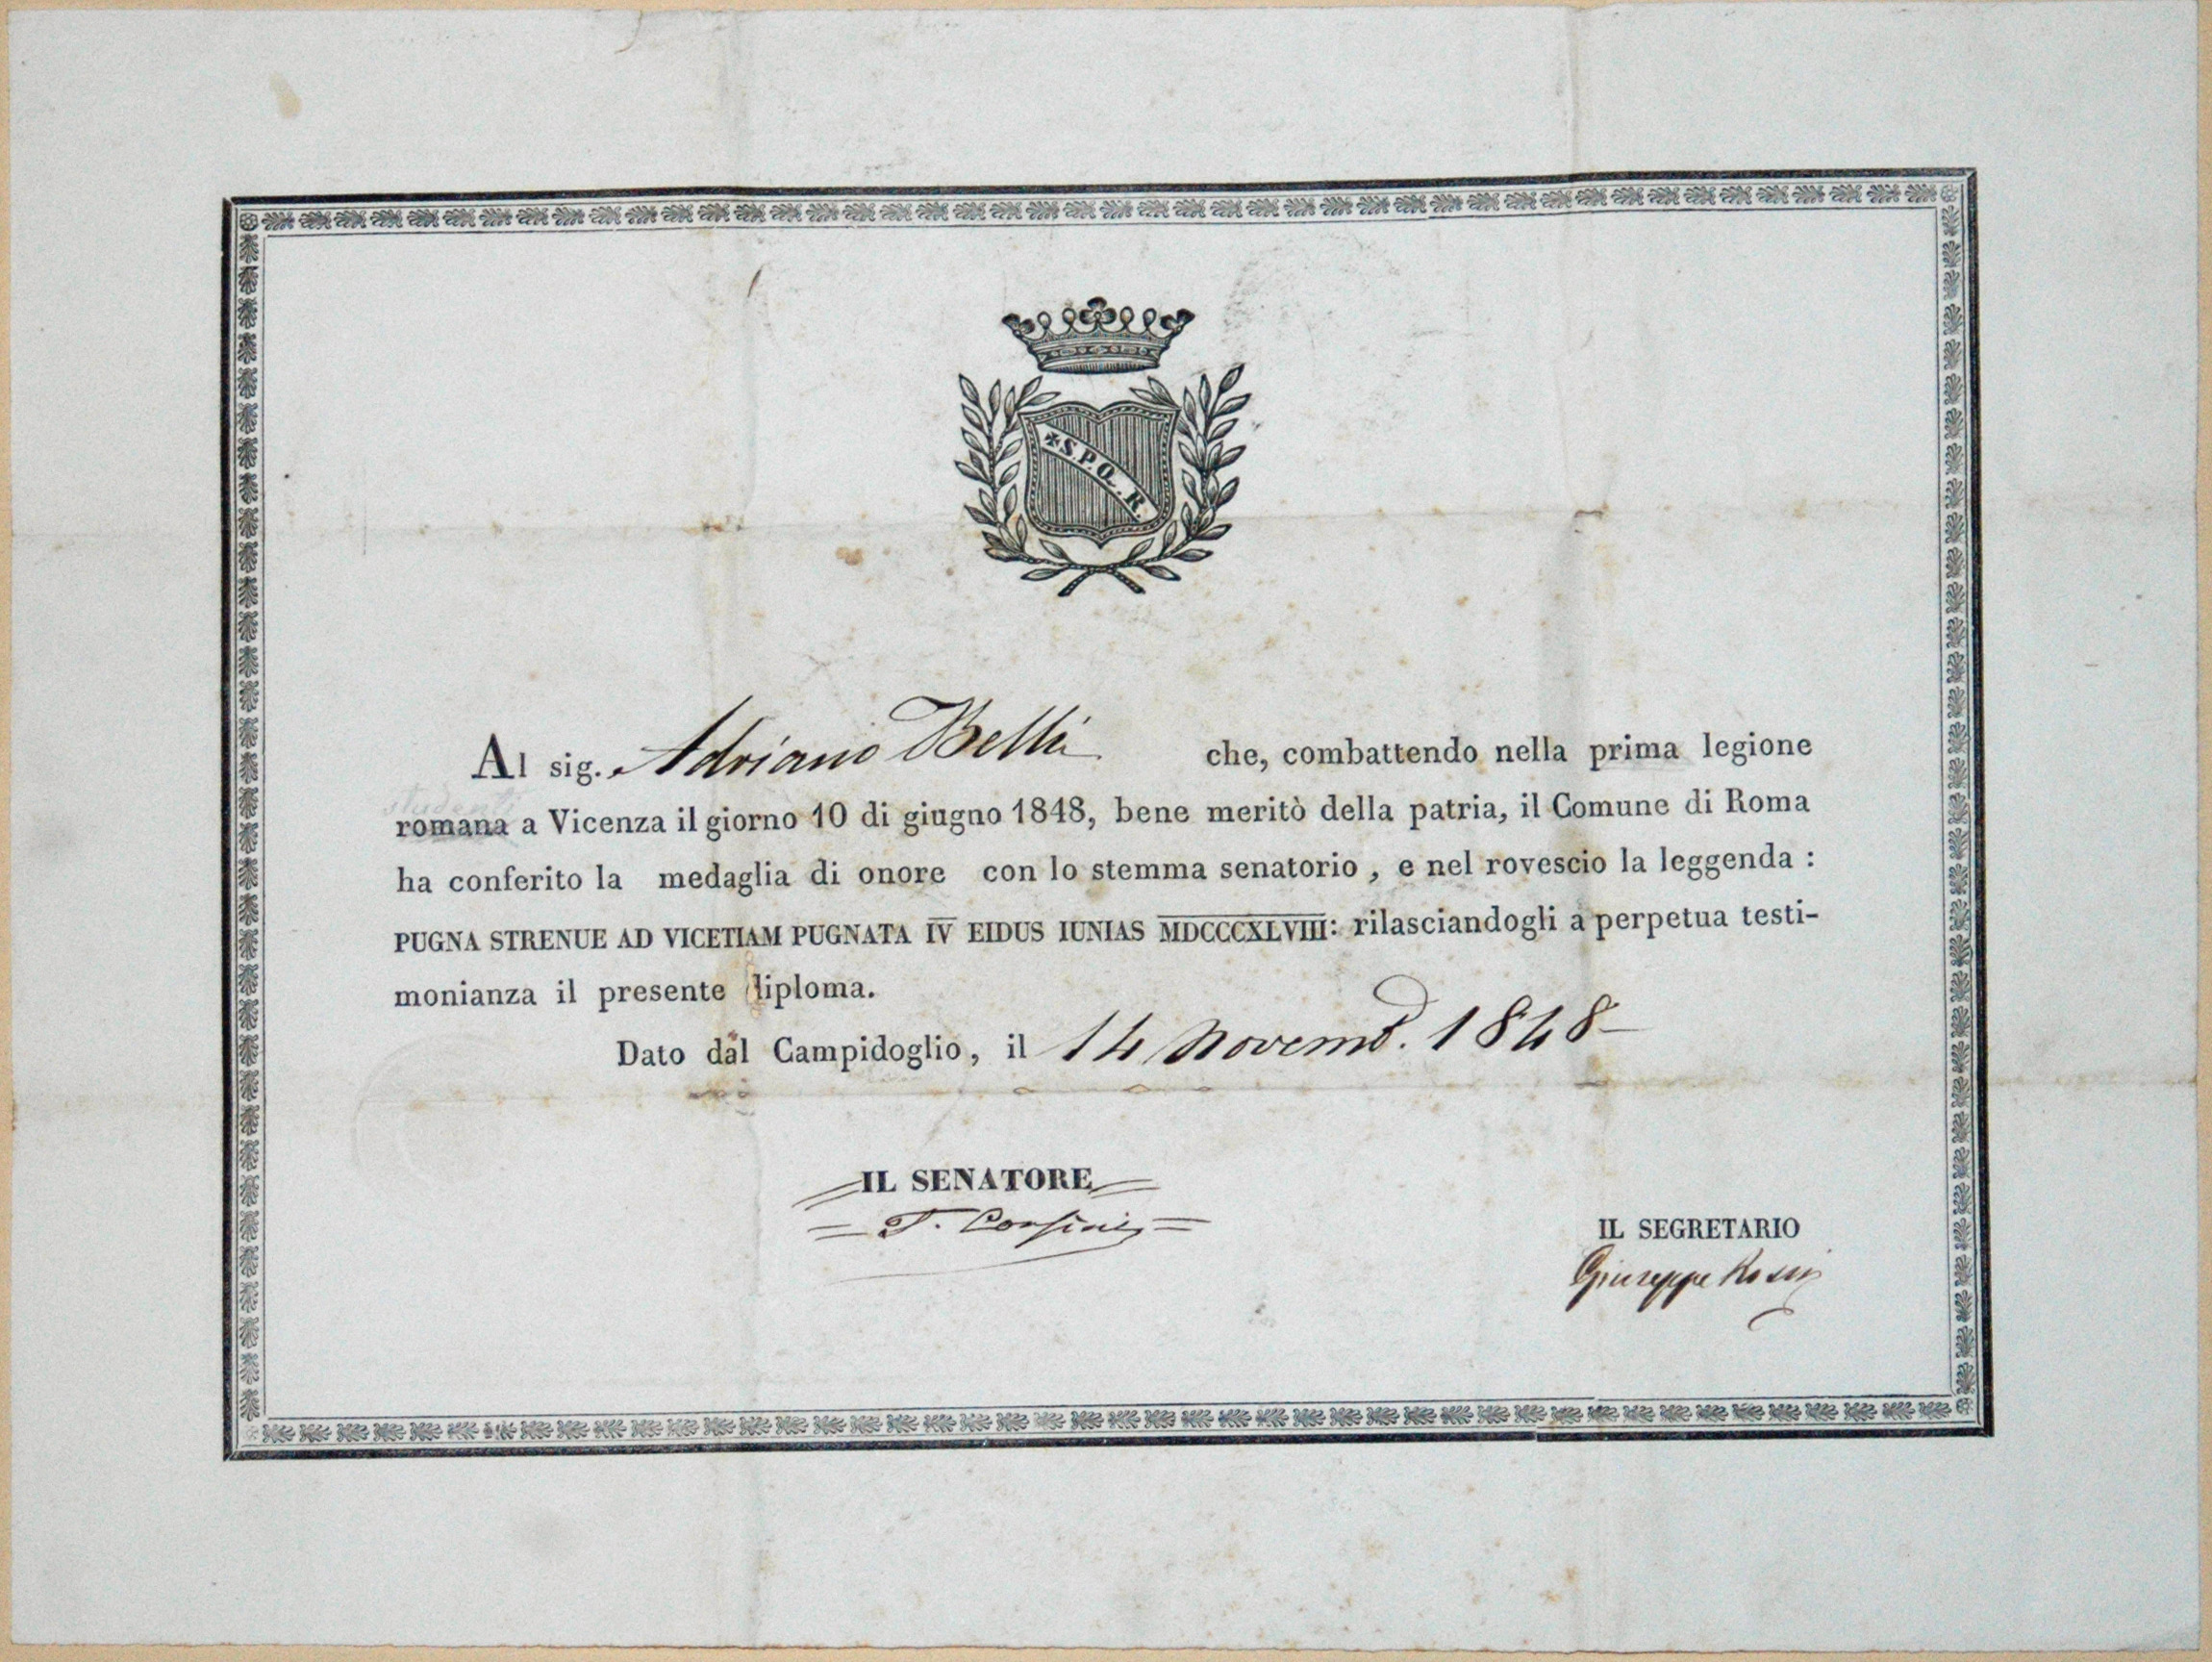 *S.P.Q.R.
Al sig. Adriano Belli che, combattendo nella prima legione
studenti
romana a Vicenza il giorno 10 di giugno 1848, bene meritò della patria, il Comune di Roma
ha conferito la medaglia di onore con lo stemma senatorio, e nel rovescio la leggenda:
PUGNA STRENUE AD VICETIAM PUGNATA IV EIDUS IUNIAS MDCCCXLVIII: rilasciandogli a perpetua testi-
monianza il presente diploma.
Dato dal Campidoglio, il 14 Novemb. 1848
IL SENATORE
T. Corsini
IL SEGRETARIO
Giuseppe Rossi